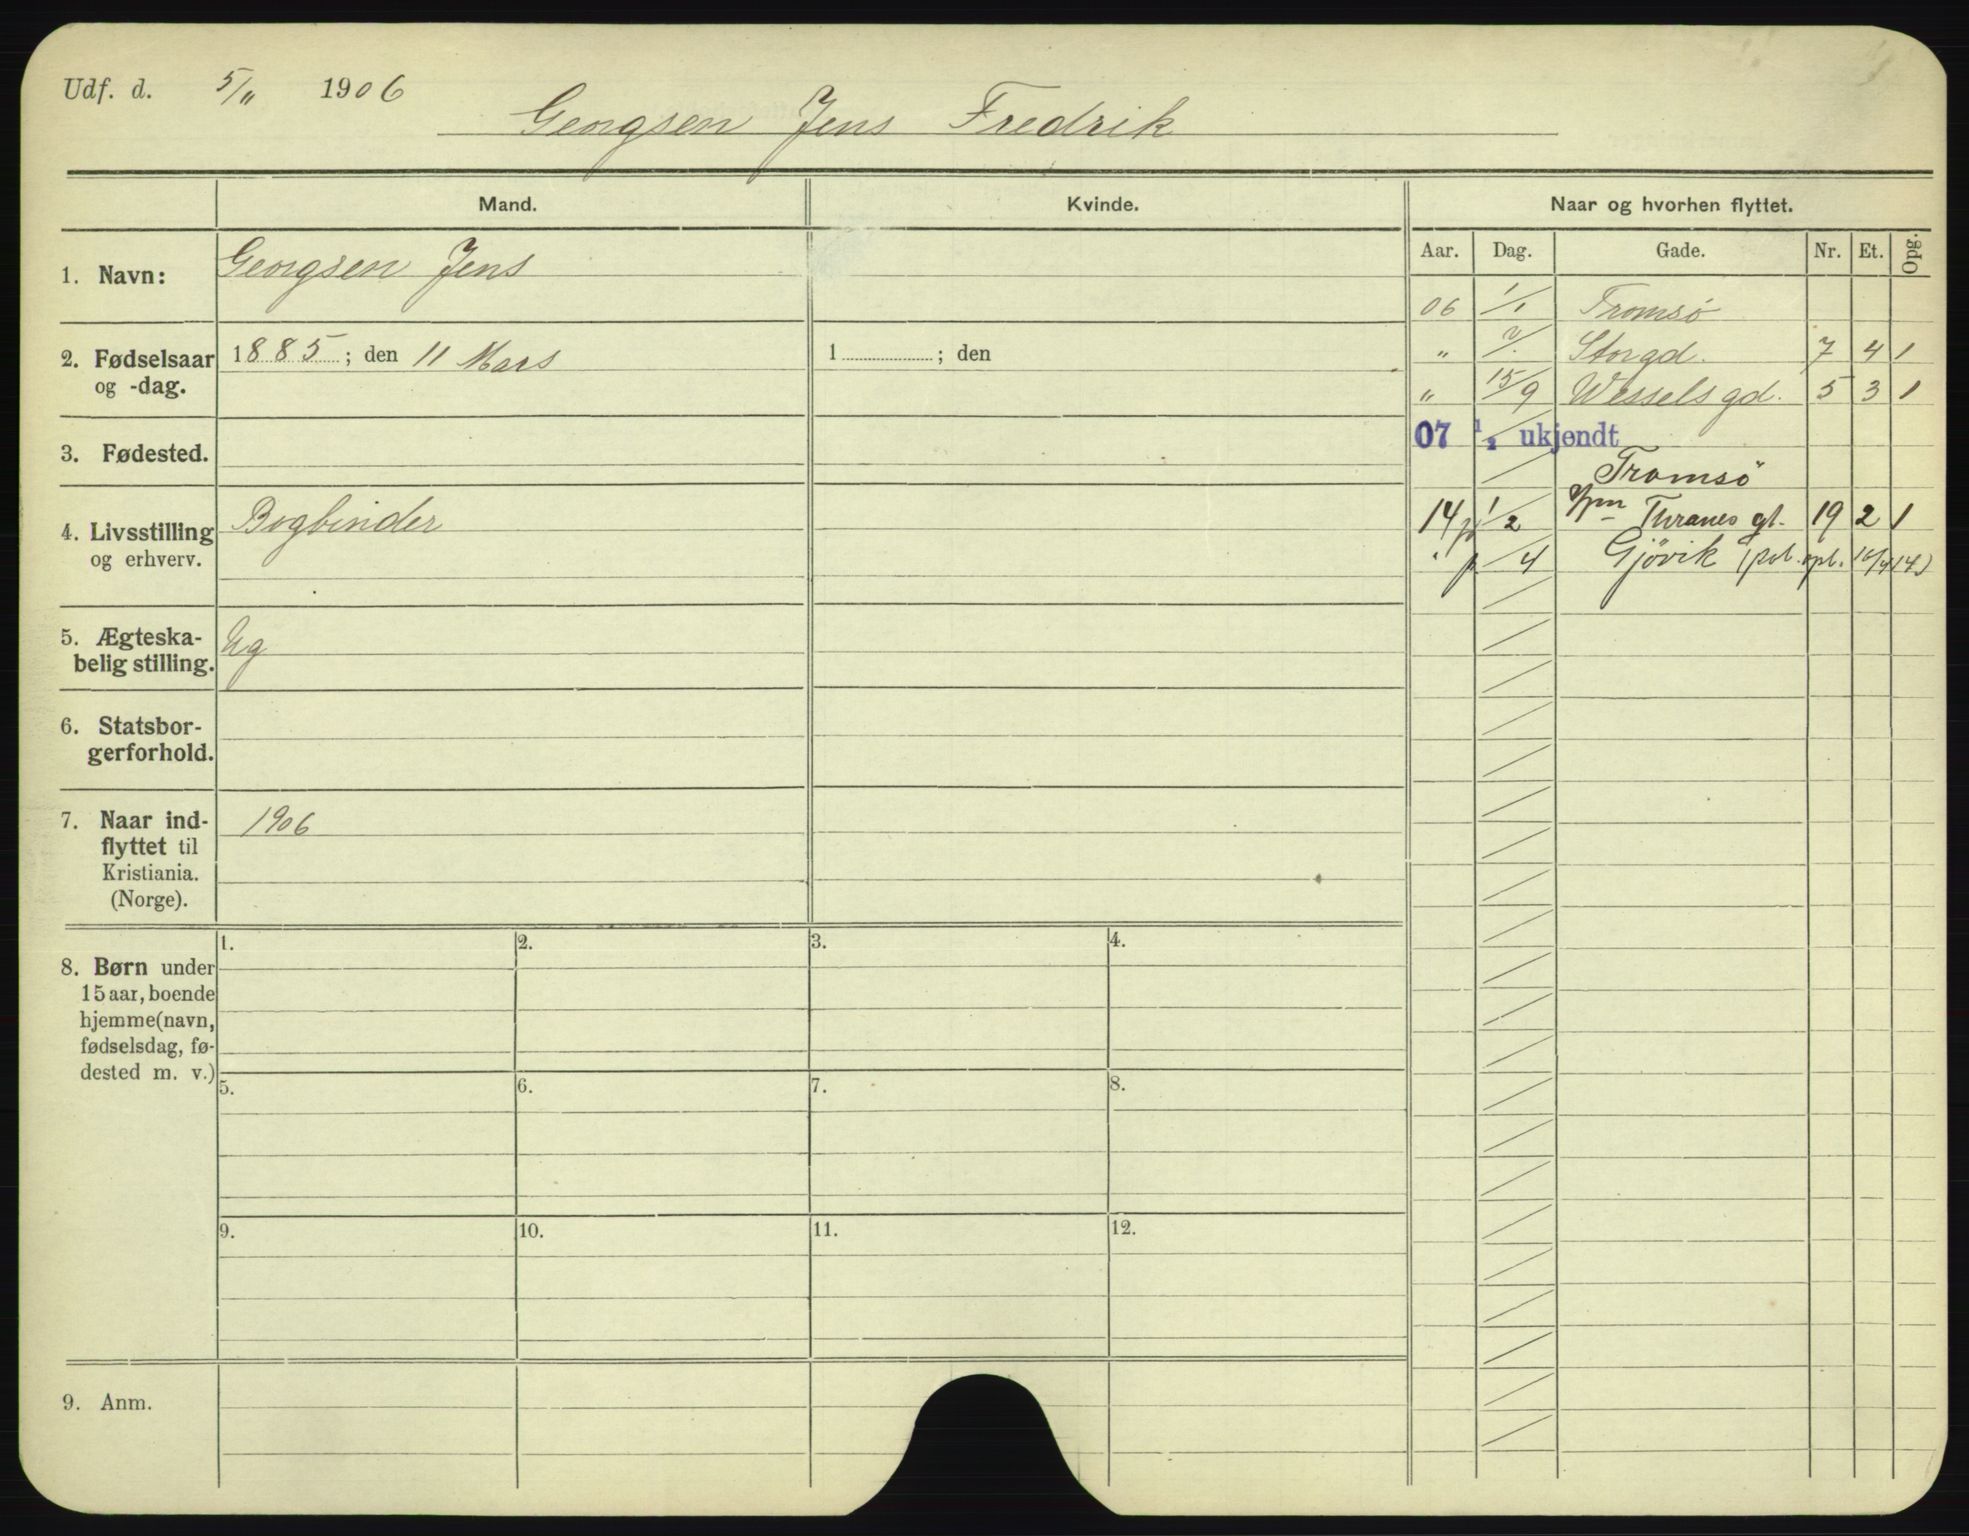 Udf. d. 5/11 1906
Georgsen Jens Fredrik
Mand. Kvinde. Naar og hvorhen flyttet.
Aar. Dag. Gade. Nr. Et. Opg.
1. Navn: Georgsen Jens
2. Fødselsaar og -dag. 1885; den 11 Mars
1 ; den
3. Fødested.
4. Livsstilling og erhverv. Bogbinder
5. Ægteska-
belig stilling. Ug
6. Statsbor-
gerforhold.
7. Naar ind-
flyttet til
Kristiania.
(Norge). 1906
8. Børn under
15 aar, boende
hjemme (navn,
fødselsdag, fø-
dested m. v.)
1. 2. 3. 4.
5. 6. 7. 8.
9. 10. 11. 12.
9. Anm.
06 1/1 Tromsø
" Storgd. 7 4 1
" 15/9 Wessels gd. 5 3 1
07 1/2 ukjendt
Tromsö
14 1/2 Thranes gt. 19 2 1
" 4 Gjövik (pol. opl. 16/4 14)